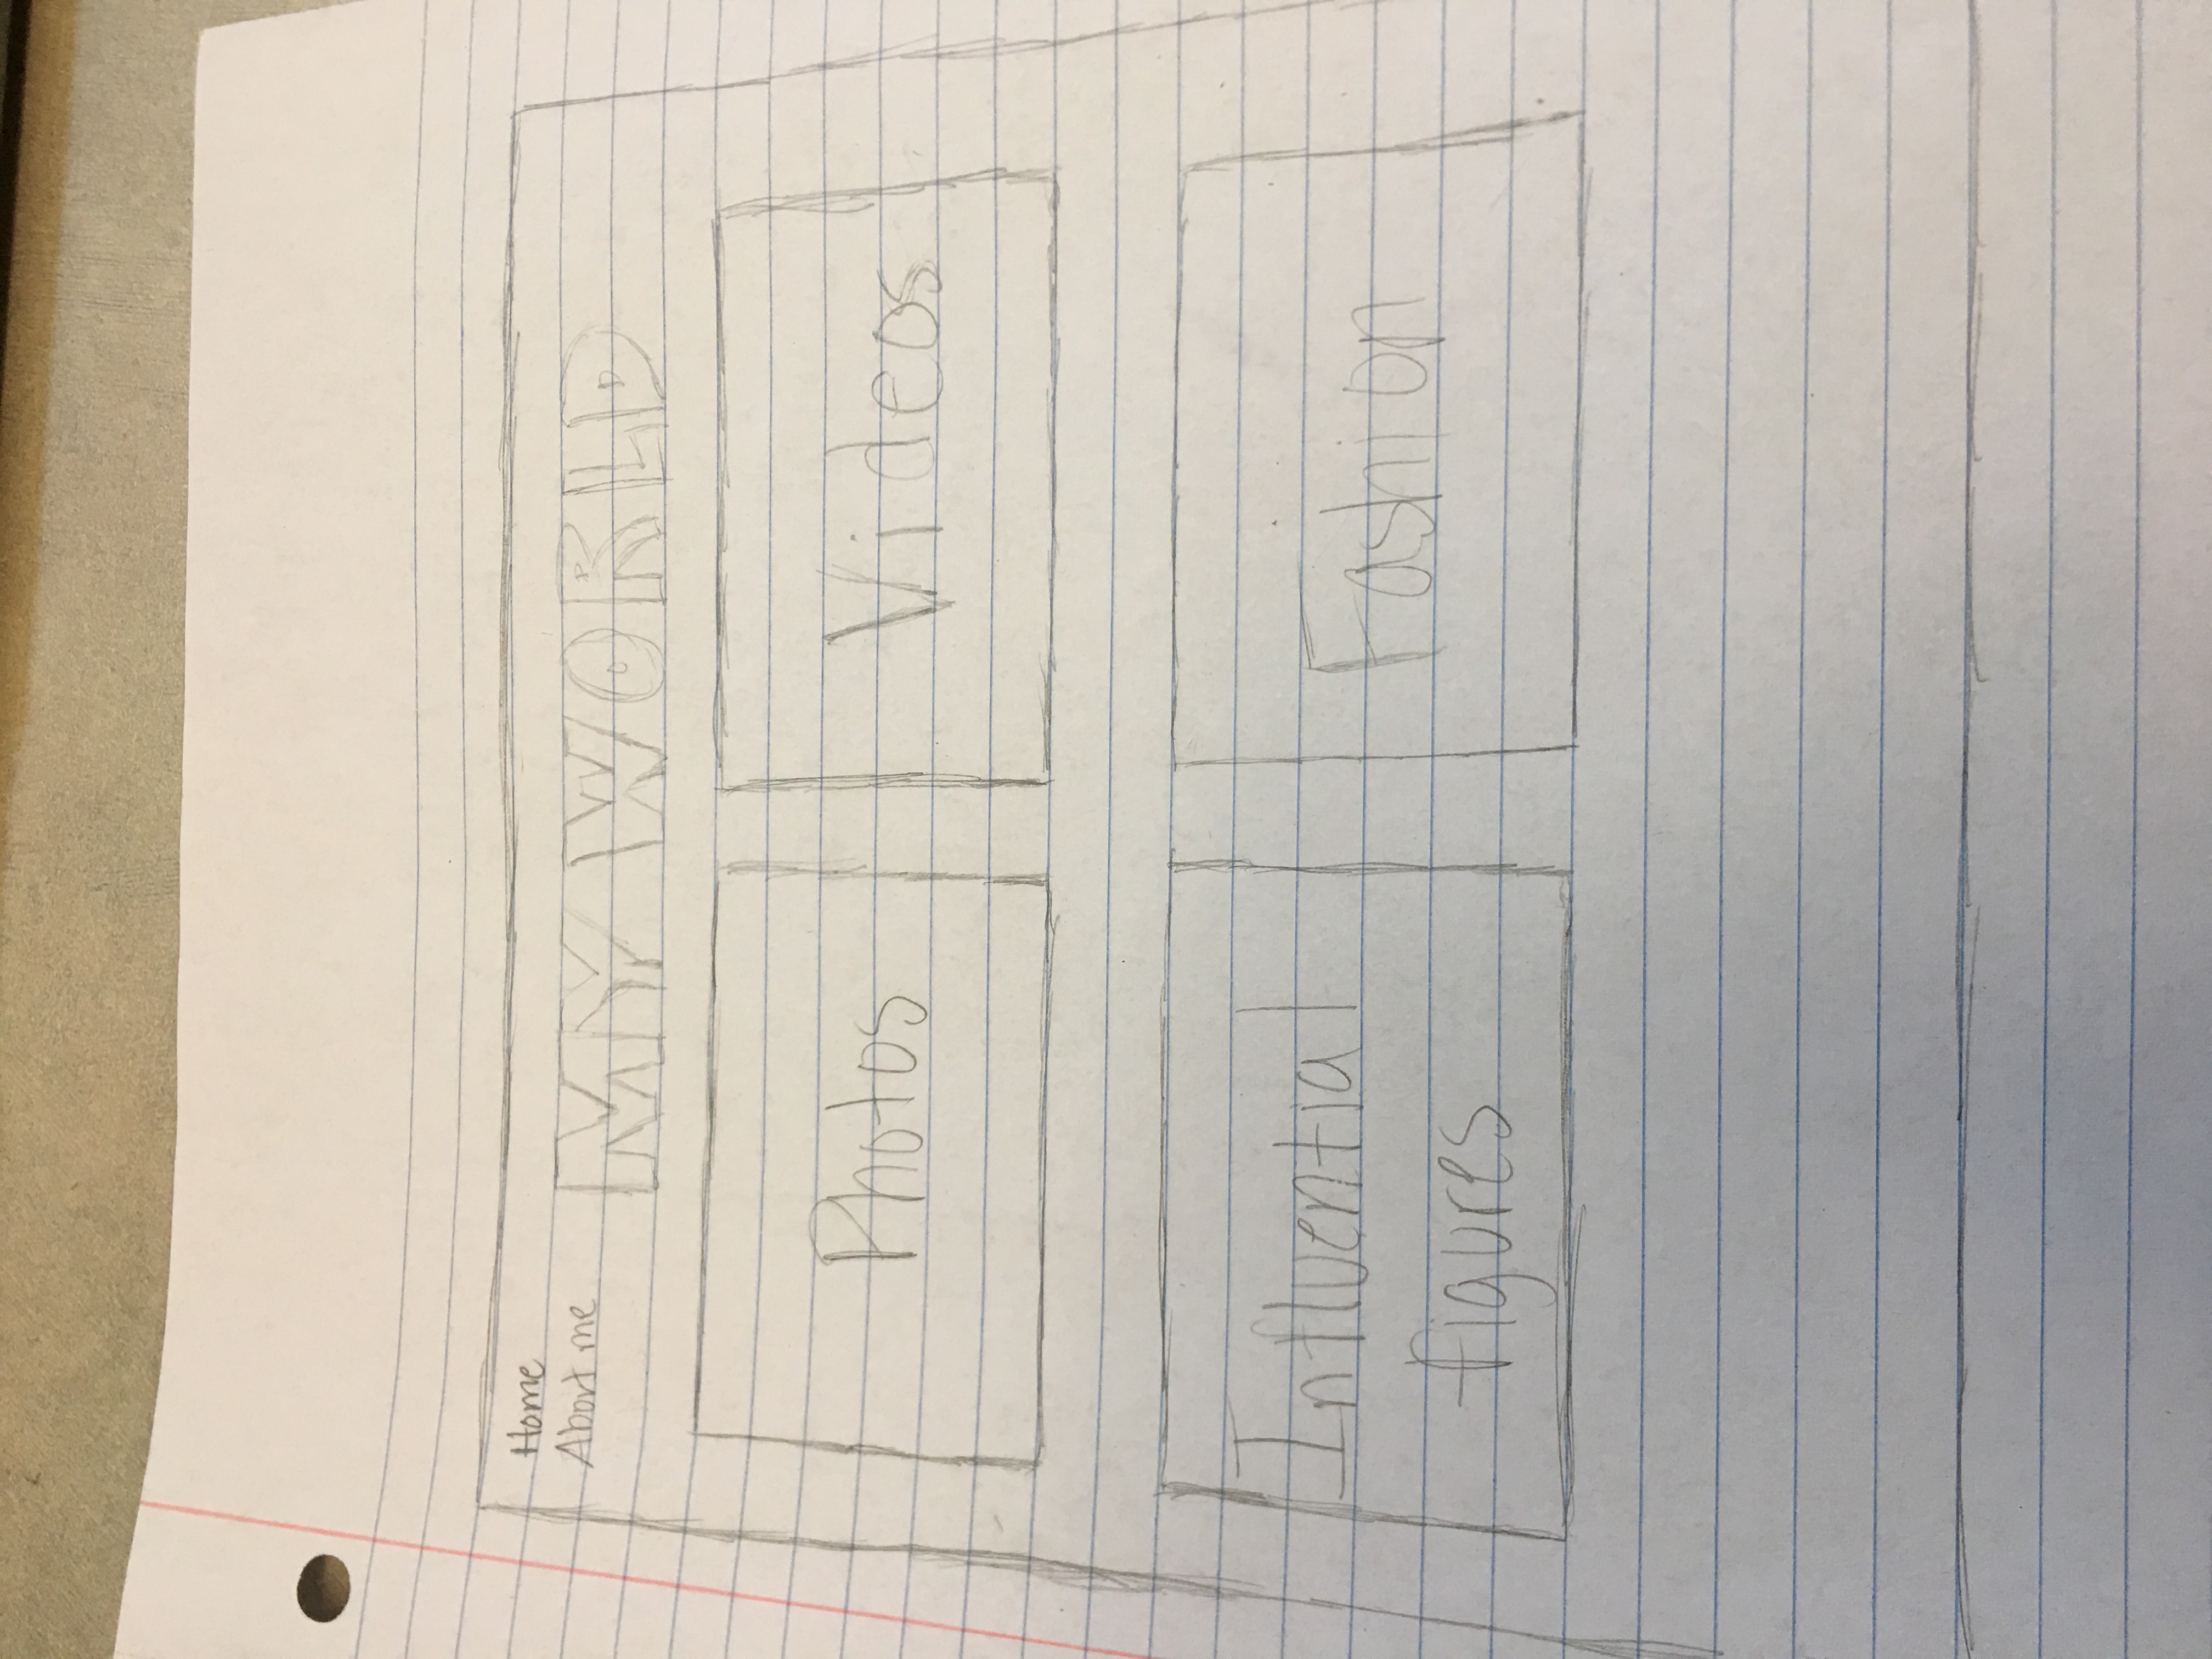 Home
About me
MY WORLD
Photos
Videos
Influential
figures
Fashion